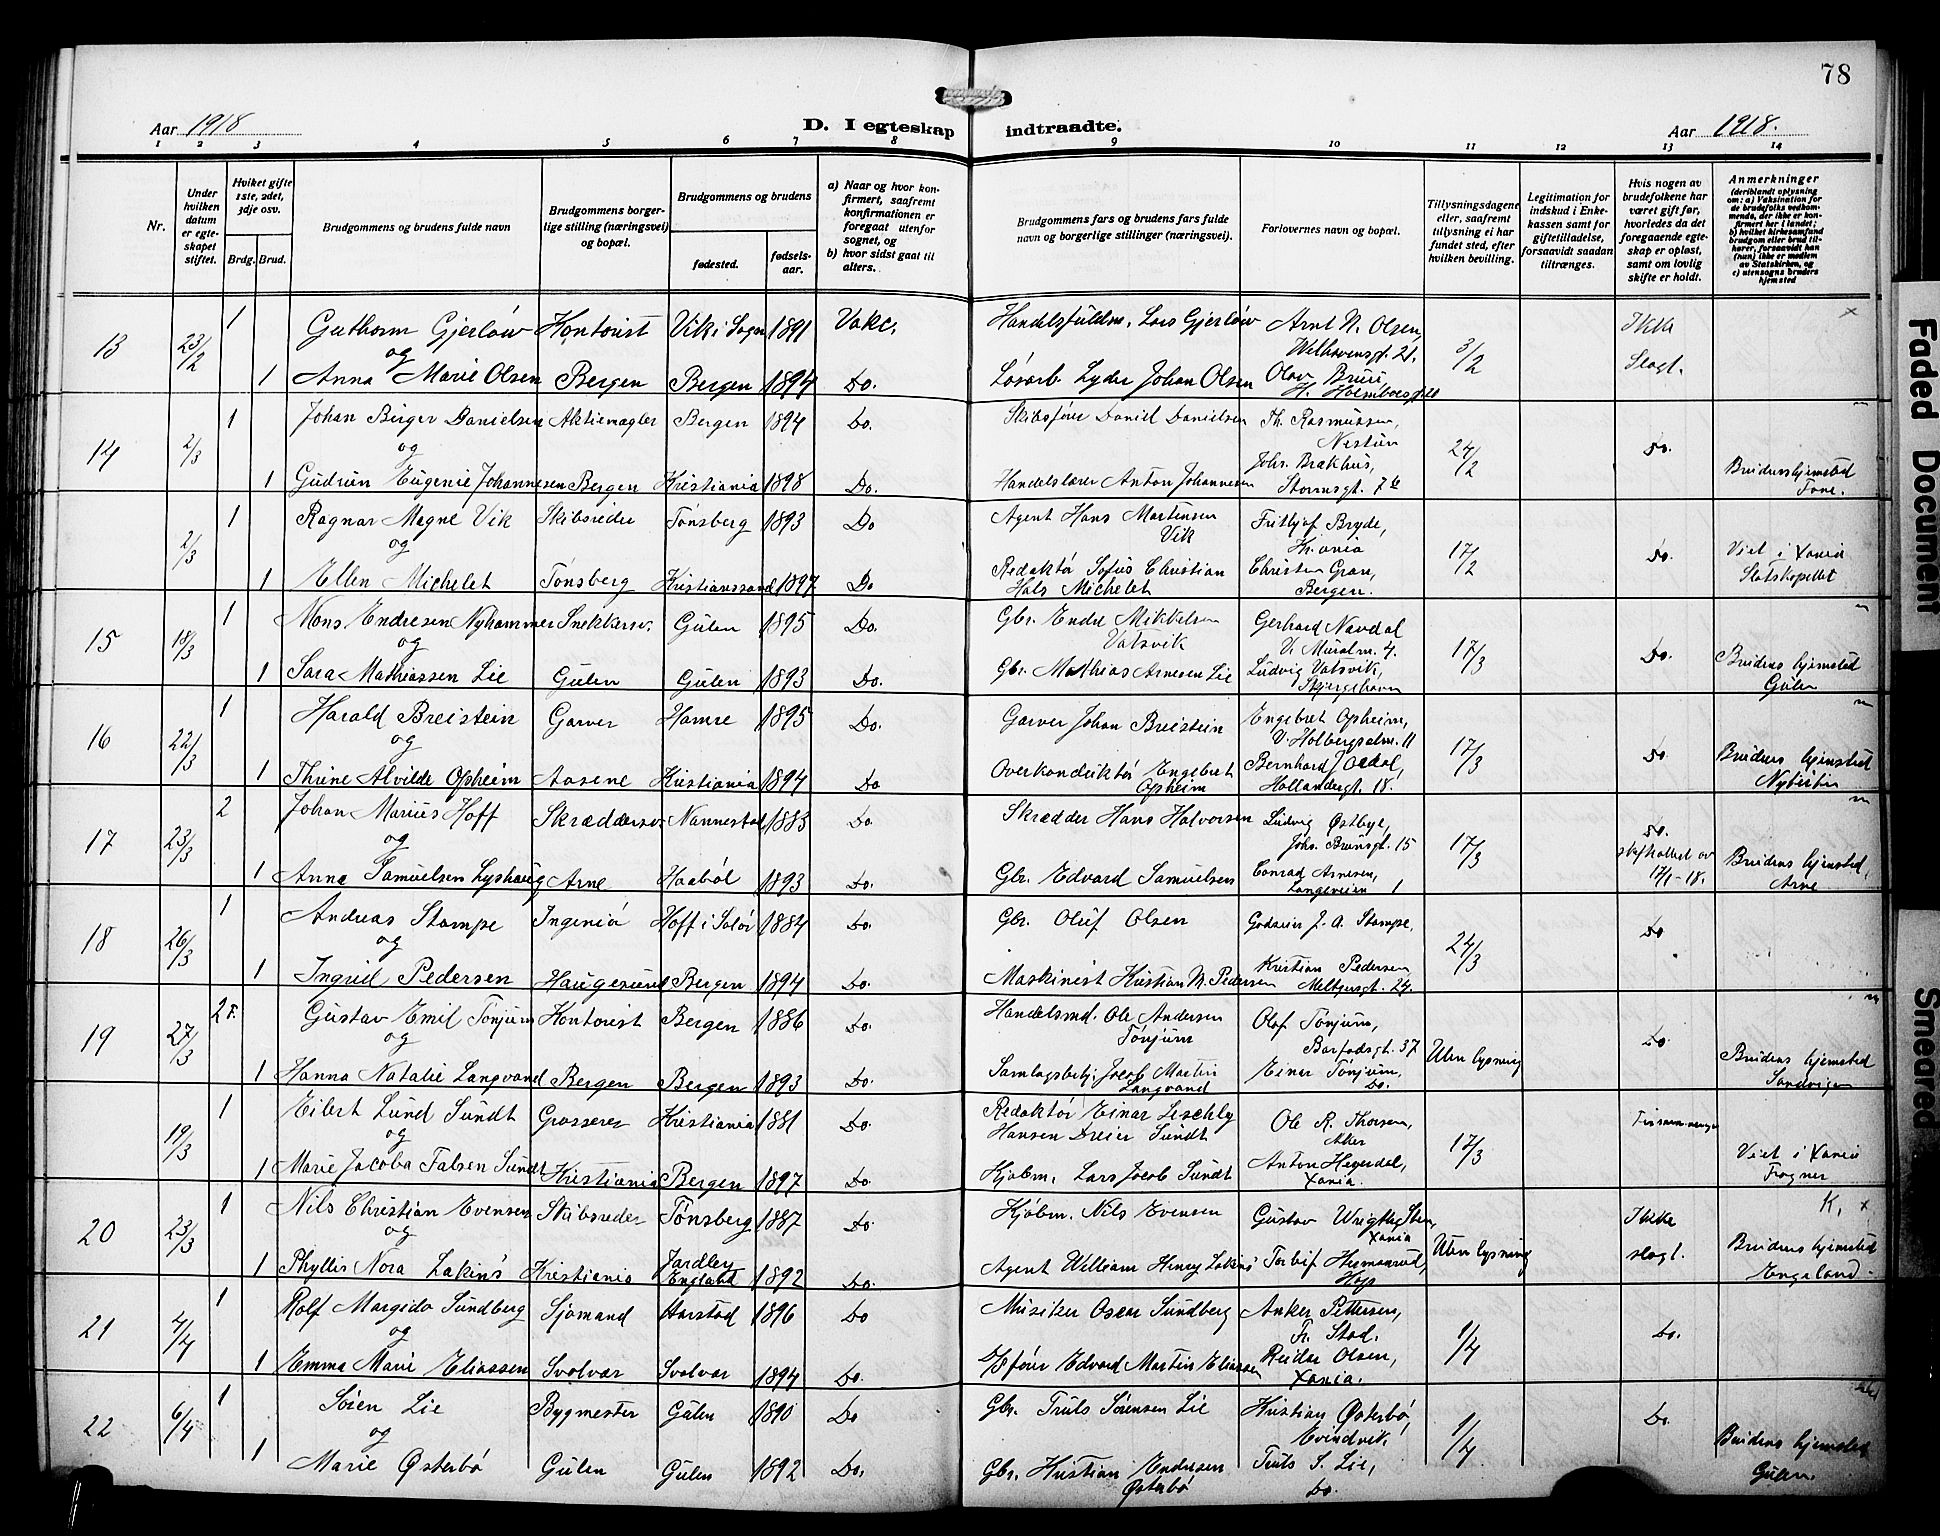 78
Aar 1918
D. I egteskap indtraadte.
Aar 1918.
1 2 3 4 5 6 7 8 9 10 11 12 13 14
Nr.
Under hvilken datum er egteskapet stiftet.
Hviket gifte 1ste, 2det, 3dje osv.
Brdg. Brud.
Brudgommens og brudens fulde navn
Brudgommens borgerlige stilling (næringsvei) og bopæl.
Brudgommens og brudens
fødested.
fødselsaar.
a) Naar og hvor konfirmert, saafremt konfirmationen er foregaat utenfor sognet, og
b) hvor sidst gaat til alters.
Brudgommens fars og brudens fars fulde navn og borgerlige stillinger (næringsvei).
Forlovernes navn og bopæl.
Tillysningsdagene eller, saafremt tillysning ei har fundet sted, efter hvilken bevilling.
Legitimation for indskud i Enkekassen samt for giftetilladelse, forsaavidt saadan tiltrænges.
Hvis nogen av brudefolkene har været gift før, hvorledes da det foregaaende egteskap er opløst, samt om lovlig skifte er holdt.
Anmerkninger (deriblandt oplysning om: a) Vaksination for de brudefolks vedkommende, der ikke er konfirmert her i landet; b) hvilket kirkesamfund brudgom eller brud tilhører, forsaavidt han (hun) ikke er medlem av Statskirken, og c) utensogns bruders hjemsted
13 23/2 1 Guthorm Gjerløw Kontorist Vik i Sogn 1891 Vake, Lars Gjerløw Arnt N. Olsen, Ikke x
og Welhavensgt. 21. 3/2 Slagt.
1 Anna Marie Olsen Bergen Bergen 1894 Do. Løsarb. Lyder Johan Olsen Olav
14 2/3 1 Johan Birger Danielsen Aktiemægler Bergen 1894 Do. Skibsfører Daniel Danielsen Th. Rasmussen,
og Nestun 24/2 Do.
1 Gudrun Eugenie Johannesen Bergen Kristiania 1898 Do. Handelslærer Anton Johannesen Johs. Brækhus, Brudens hjemsted
2/3 1 Ragnar Magne Vik Skibsreder Tønsberg 1893 Do Agent Hans Martinsen Vik Fritjof Bryde,
og Kr.ania 17/2 Do. Viet i Xania
1 Ellen Michelet Tønsberg Kristianssand 1897 Do Redaktør Sofus Christian Hals Michelet Christen Gran, Bergen. Slotskapellet
15 18/3 1 Mons Endresen Nyhammer Snekkersv. Gulen 1895 Do. Gbr. Endre Mikkelsen Vatsvik Gerhard Navdal
og 17/3 Do.
1 Sara Mathiassen Lie Gulen Gulen 1893 Do. Gbr. Mathias Arnesen Lie Ludvig Vatsvik, Skjergehavn Brudens hjemsted Gulen
16 22/3 1 Harald Breistein Garver Hamre 1895 Do. Garver Johan Breistein Engebret Opheim,
og V. Holbergsalm. 11 17/3 Do.
1 Thrine Alvilde Opheim Aasene Kristiania 1894 Do Overkonduktør Engebret Opheim Bernhard J. Hollendergt. 18. Brudens hjemsted
17 23/3 2 Johan Marius Hoff Skræddersv. Nannestad 1883 Do Skrædder Hans Halvorsen Ludvig Østbye,
og Johs. Brunsgt. 15 17/3 Do.
1 Anna Samuelsen Lyshaug Arne Haabøl 1893 Do. Gbr. Edvard Samuelsen Conrad Arnesen, Langeveien 1 17/1-18. Brudens hjemsted, Arne
18 26/3 1 Andreas Stampe Ingeniø Hoff i Solør 1884 Do. Gbr. Oluf Olsen Godseier J. A. Stampe,
og 24/3 Do
1 Ingrid Pedersen Haugesund Bergen 1894 Do. Maskinist Kristian M. Pedersen Kristian Pedersen Meltzersgt. 24.
19 27/3 2 F. Gustav Emil Tønjum Kontorist Bergen 1886 Do. Handelsmd. Ole Andersen Tønjum Olaf Tønjum,
og 37 Uten lysning Do.
1 Hanna Natalie Langvand Bergen Bergen 1893 Do. Jacob Martin Langvand Einar Tønjum, Do. Brudens hjemsted Sandvigen
19/3 1 Eilert Lund Sundt Grosserer Kristiania 1881 Do. Redaktør Einar Hansen Dreier Sundt Ole R. Thorsen, Aker
og 17/3
1 Marie Jacoba Falsen Sundt Kristiania Bergen 1897 Do. Kjøbm. Lars Jacob Sundt Anton Heyerdal, Xania. Viet i Xania Frogner
20 23/3 1 Nils Christian Evensen Skibsreder Tønsberg 1887 Do. Kjøbm. Nils Evensen Gustav Xania Ikke K, x
og Uten lysning slagt.
1 Phyllis Nora Lakins Kristiania Jardley England 1892 Do. Agent William Henry Lakins Brudens hjemsted England.
21 4/4 1 Rolf Margido Sundberg Sjømand Harstad 1896 Do Musiker Oscar Sundberg Anker Pettersen,
og Fr. Stad. 1/4 Do.
1 Emma Marie Eliassen Svolvær Svolvær 1894 Do. D/S fører Edvard Martin Eliassen Reidar Olsen, Xania.
22 6/4 1 Søren Lie Bygmester Gulen 1890 Do Gbr. Truls Sørensen Lie Kristian Østerbø,
og Evindvik 1/4 Do
1 Marie Østerbø Gulen Gulen 1892 Do. Gbr. Kristian Endresen Østerbø Truls S. Lie, Do. Brudens hjemsted Gulen.
Faded Document
Smeared